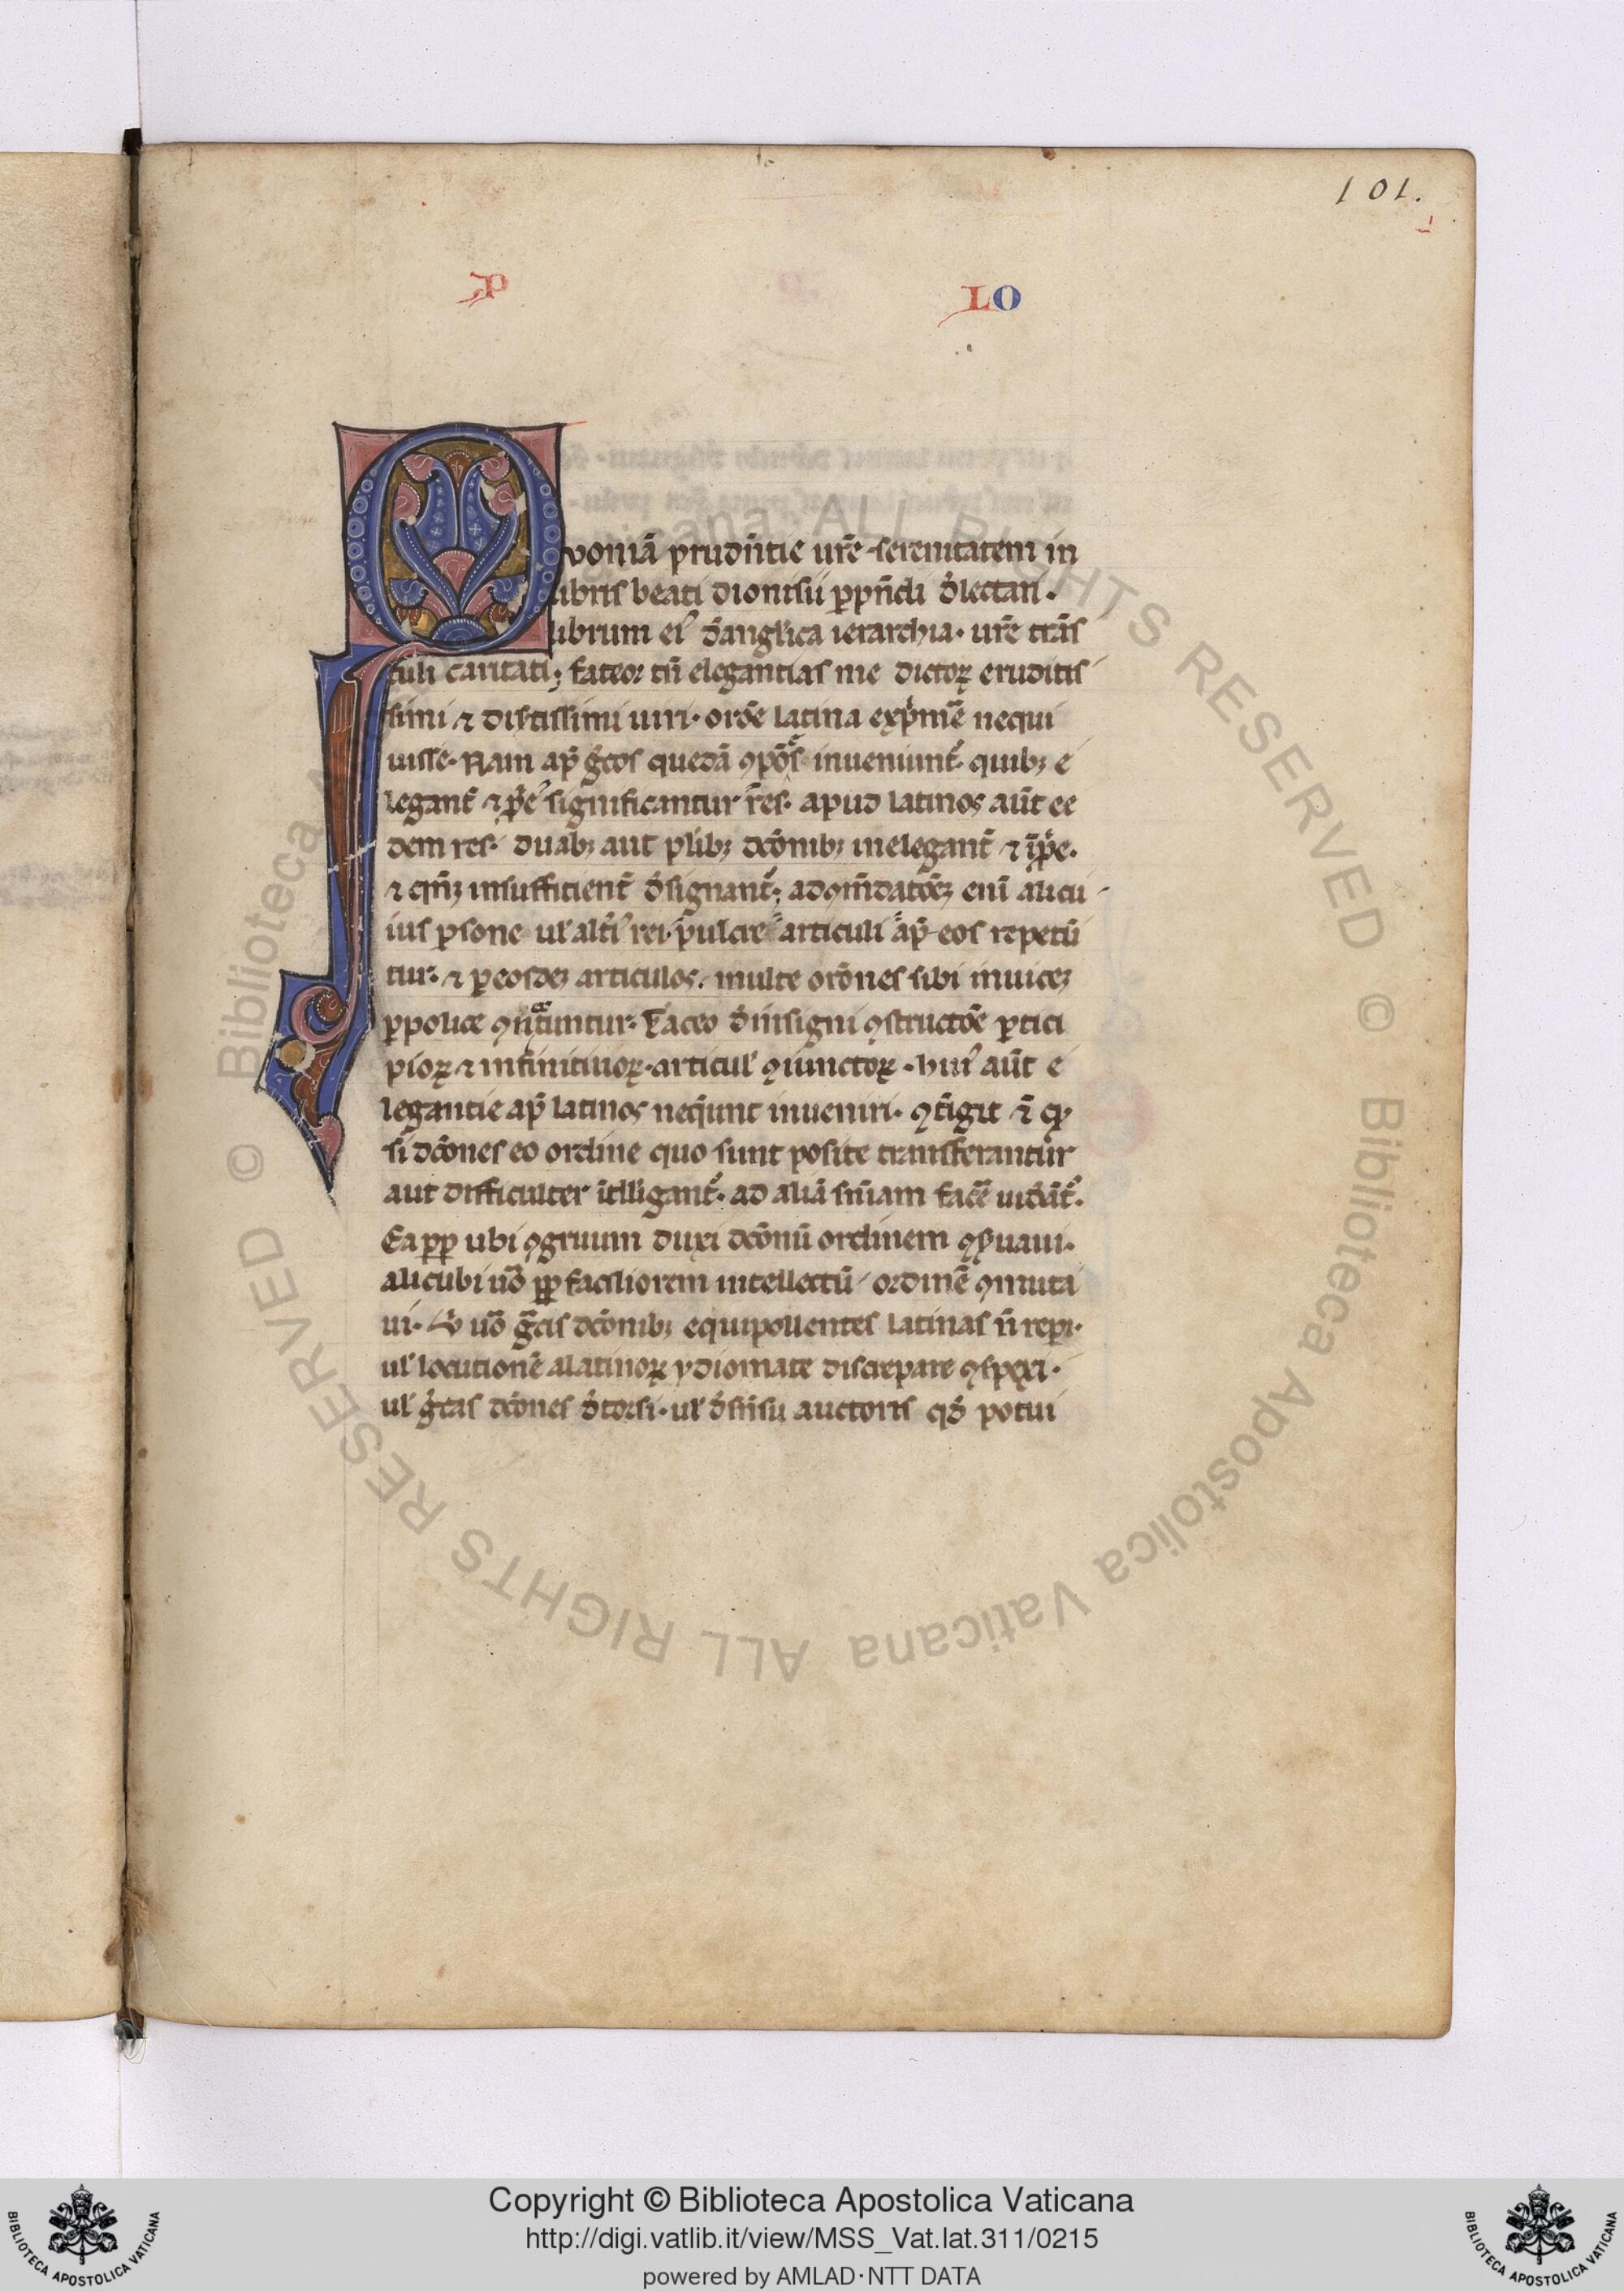 101.
P LO
Quoniā prudn̄tie ur̄e serenitatem in
libris beati dionisii ꝑpn̄di delectari.
librum eiꝰ d̓ anglica ierarchia. ur̄e trās
tuli caritati; fateor tn̄ elegantias me dictoꝝ eruditis
simi ⁊ disertissimi uiri. or̄oe latina exp̓mē nequi
uisse. Nam ap̄ g̓cos quedā ꝯpo͂s inueniunt̄. quibꝫ e
legant̄ ⁊ ꝓp̓e significantur res. apud latinos aūt ee
dem res. duabꝫ aut plibꝫ dcōnibꝫ inelegant̄ ⁊ īꝓp̓e.
insufficient̄ d̓signant̄; enī alicu
ius ꝑsone ul̓ alt̓iꝰ rei. pulcre articuli ap̄ eos repetū
tur. ⁊ ꝑ eosdeꝫ articulos. multe orōnes sibi inuiceꝫ
Taceo d̓ insigni ꝯstructōe ꝑtici
pioꝝ ⁊ infinitiuoꝝ. articul̓ ꝯiunctoꝝ. huiꝰ aūt e
legantie ap̄ latinos neq̓unt inueniri. ꝯtīgit
si dcōnes eo ordine quo sunt posite transferantur
aut difficulter īt̓lligant̄. ad aliā sn̄iam
Ea ꝓpp̄ ubi ꝯgruum duxi dcōnū ordinem ꝯs̓uaui.
alicubi uō ꝓpp̄ faciliorem intellectū ordinē ꝯmuta
ui. uō g̓cis dcōnibꝫ equipollentes latinas n̄ repi.
ul̓ locutionē a latinoꝝ ydiomate discrepare ꝯspexi.
ul̓ g̓cas dcōnes d̓torsi. ul̓ d̓ sn̄su auctoris qd̓ potui
© Biblioteca Apostolica Vaticana ALL RIGHTS RESERVED
Copyright © Biblioteca Apostolica Vaticana
http://digi.vatlib.it/view/MSS_Vat.lat.311/0215
powered by AMLAD·NTT DATA
BIBLIOTECA APOSTOLICA VATICANA
BIBLIOTECA APOSTOLICA VATICANA